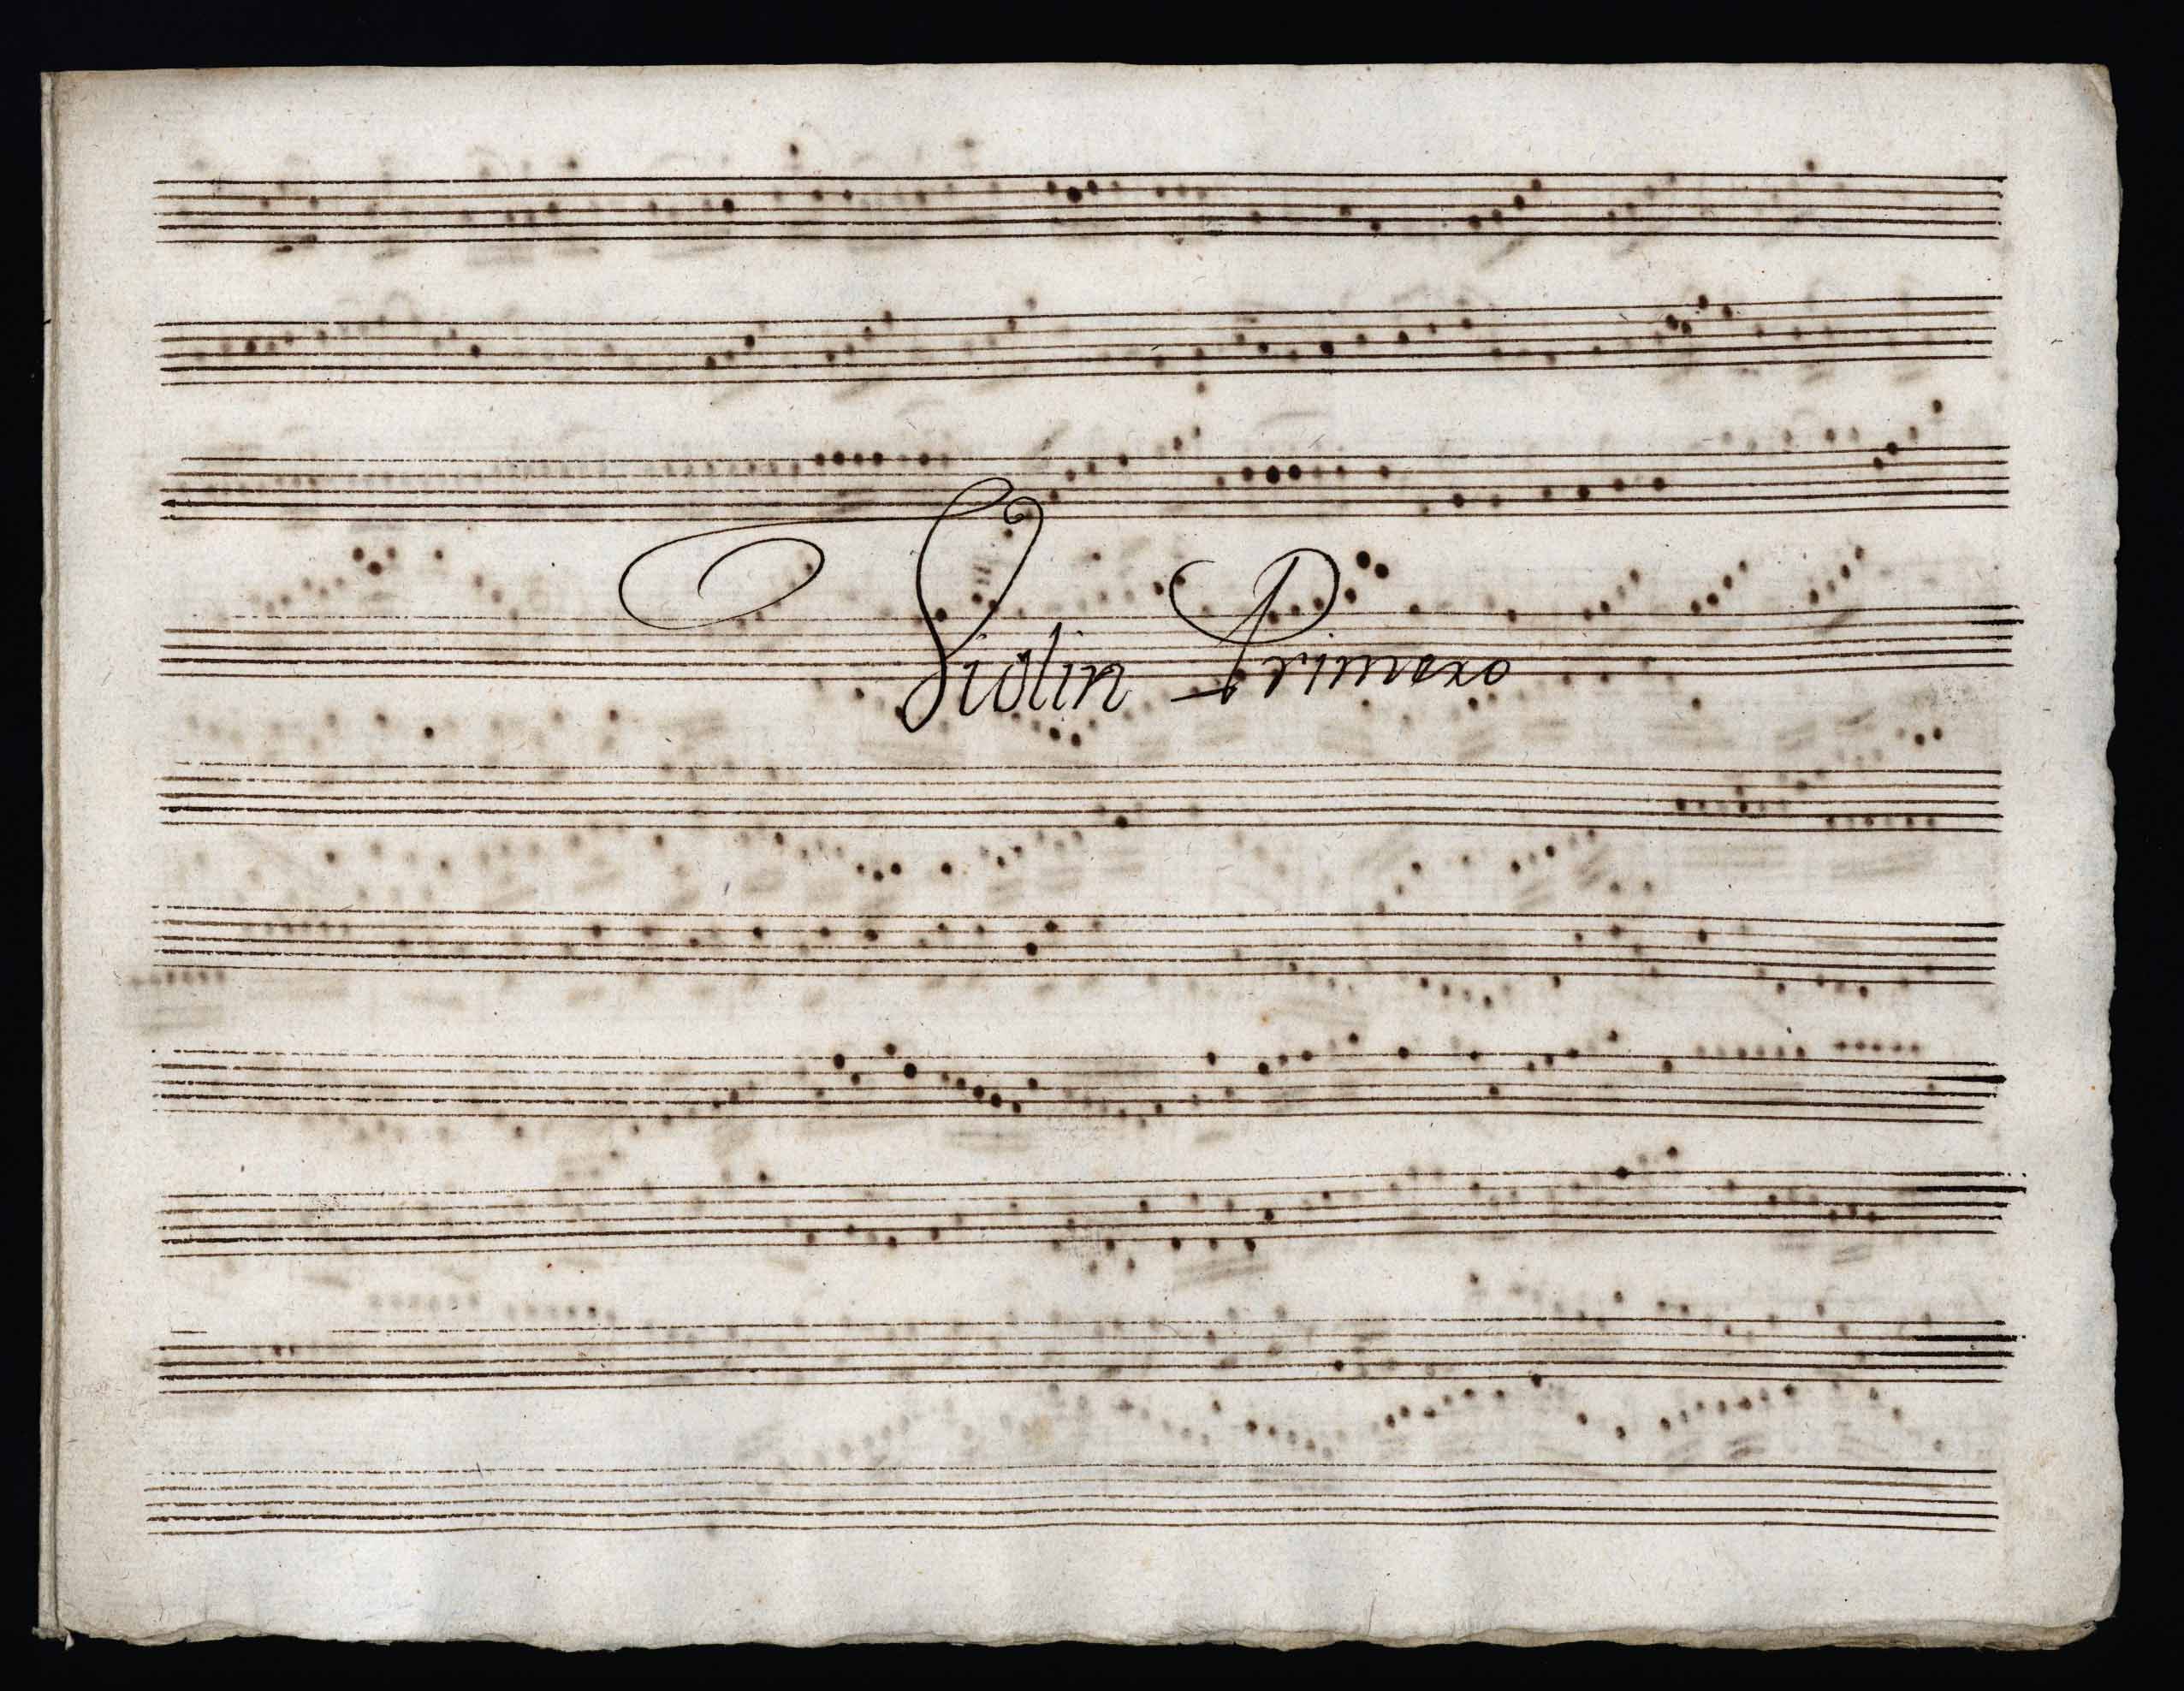 Violin Primero